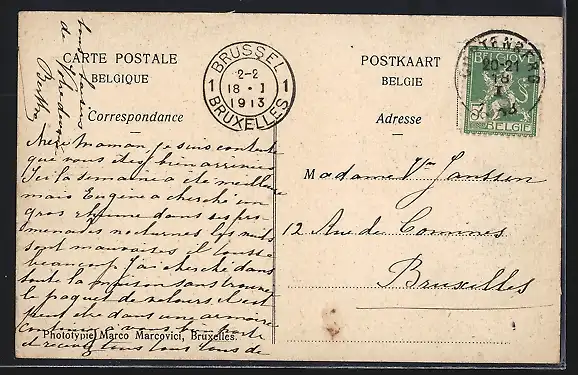 CARTE POSTALE
BELGIQUE
Correspondance
BRUSSEL
1 2-2 1
18 · I
1913
BRUXELLES
POSTKAART
BELGIE
Adresse
20-21
18
I
BELGIQUE
5 5
BELGIË
Berthe
Chère Maman, je suis contente
que vous êtes bien arrivée
Ici la semaine a été meilleure
mais Eugène a cherché un
gros rhume dans ses pro
menades nocturnes les nuits
sont mauvaises il tousse
beaucoup. J'ai cherché dans
toute la maison sans trouver
le paquet de velours, il est
peut être dans une armoire
et recevez tous tous tous de
Madame Vve Janssen
12 Rue de Comines
Bruxelles
Phototypie Marco Marcovici, Bruxelles.